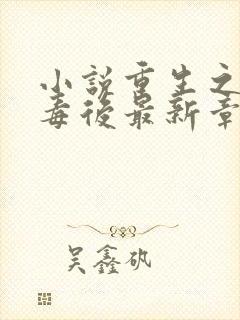 小说重生之
毒后最新章
吴鑫矾